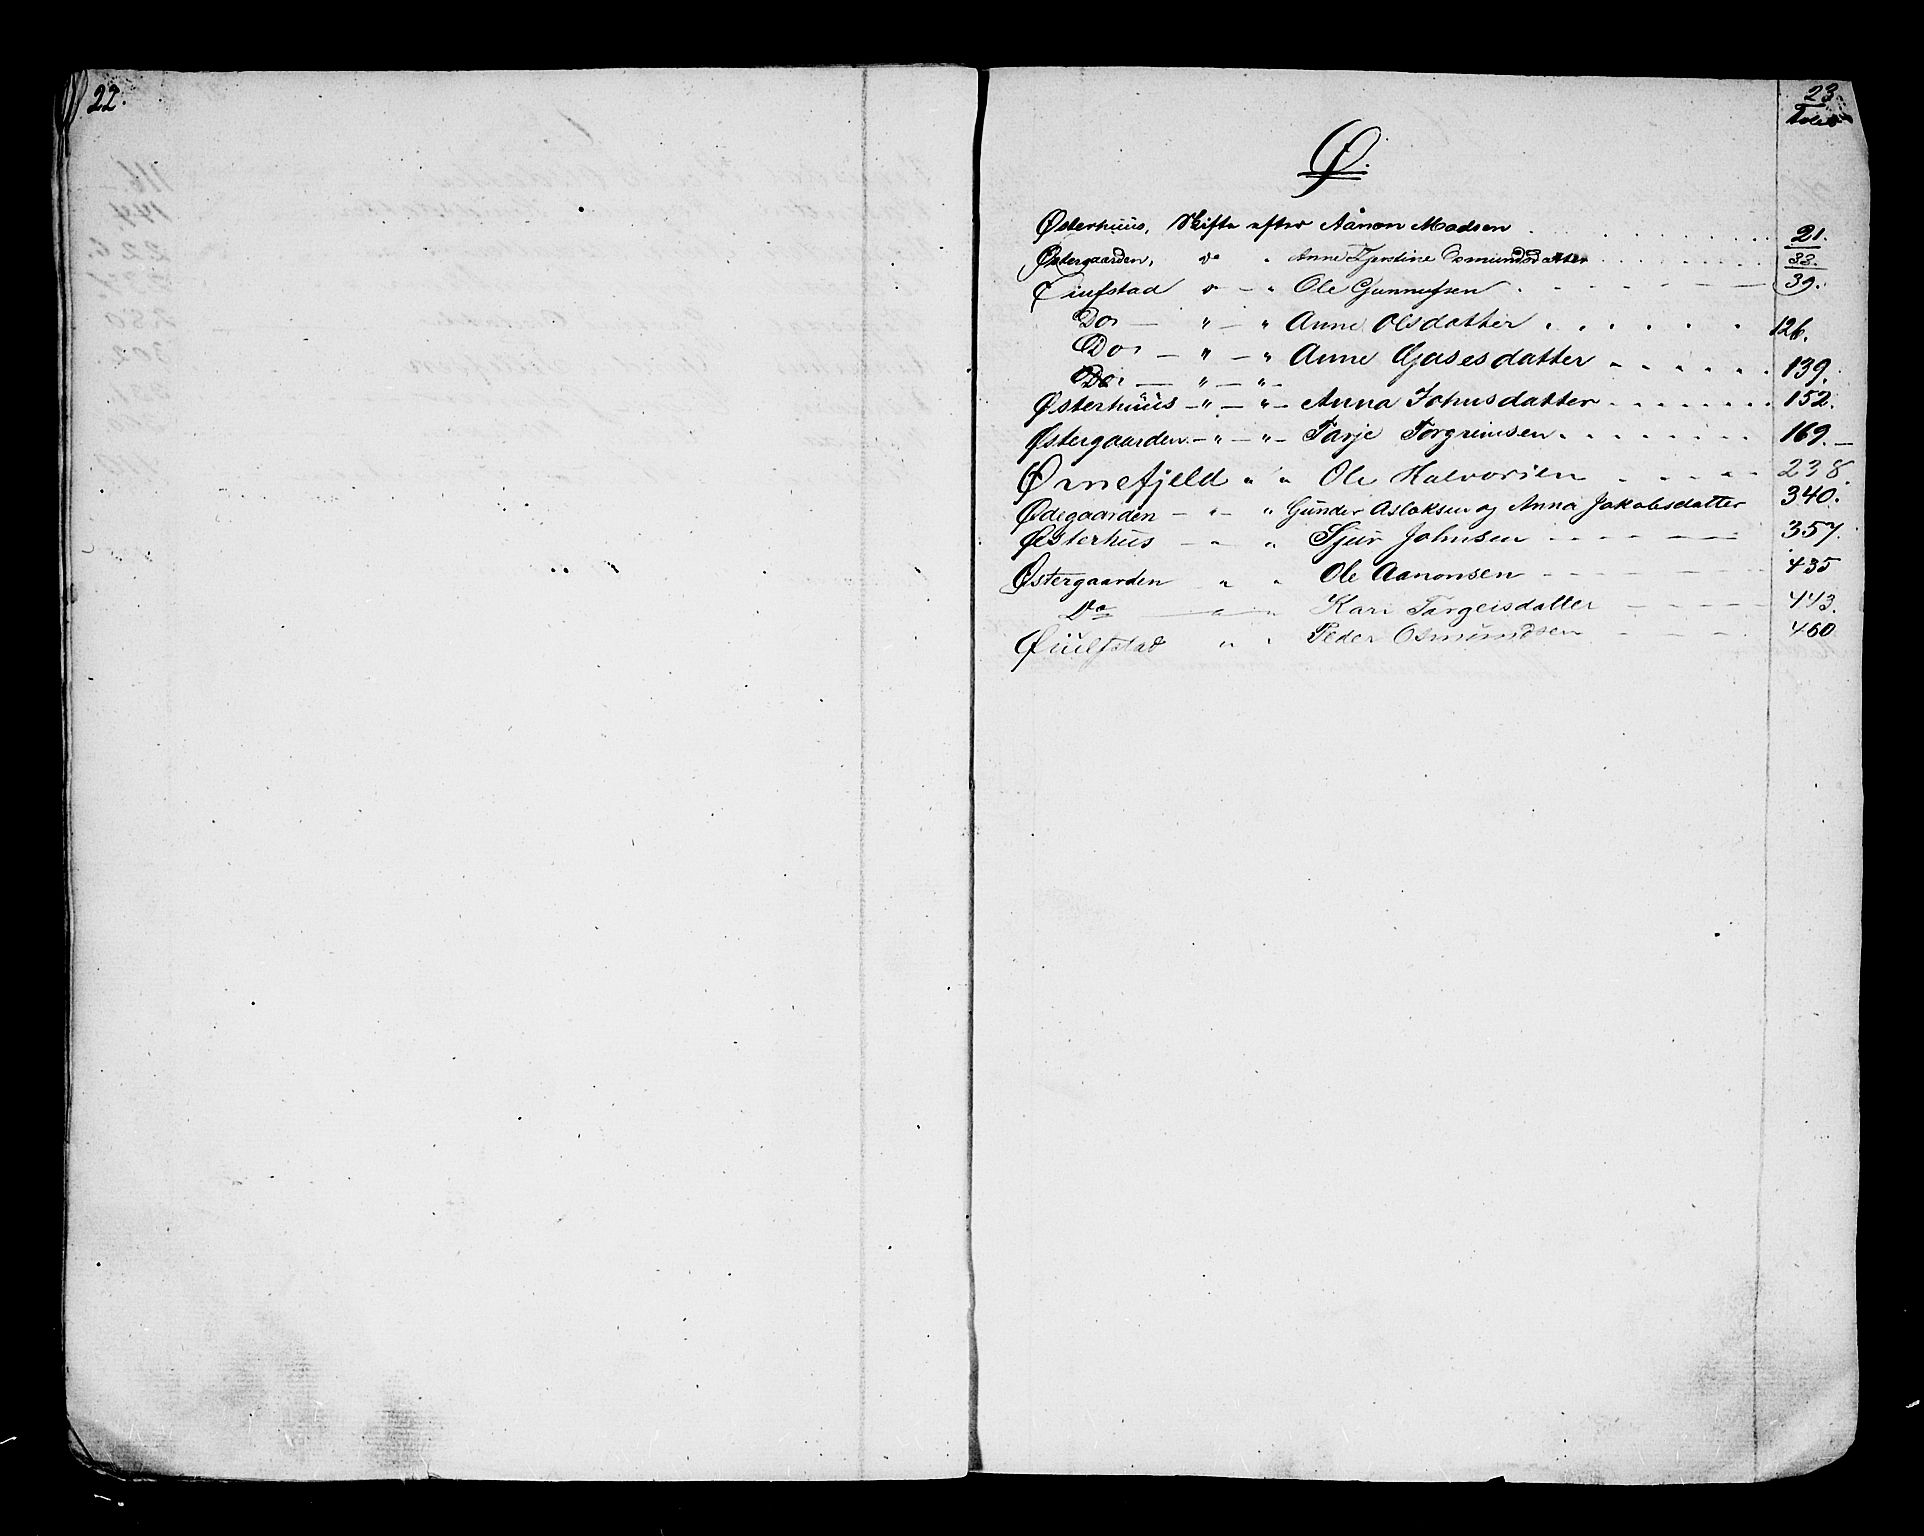 22.
23
Folio
Ø.
Østerhuus, Skifte efter Aanon Madsen 21.
Østergaarden, do " Anne Kjerstine Osmundsdatter 33.
Øiufstad " - " Ole Gunnufsen 39.
Do, - " - " Anne Olsdatter 126.
Do, - " - " Anne Gjasesdatter 139.
Do, - " - "
Østerhuus - " - " - Anna Johnsdatter 152.
Østergaarden - " - " - Tarje Torgrimsen 169.
Ørnefjeld " " Ole Halvorsen 238.
Ødegaarden - " - " Gunder Aslaksen og Anna Jakobsdatter 340.
Østerhus - " - " Sjur Johnsen 357.
Østergaarden " " Ole Aanonsen 435
Do - " - " Kari Targeisdatter 443.
Øiulfstad " " Peder Osmundsen 460